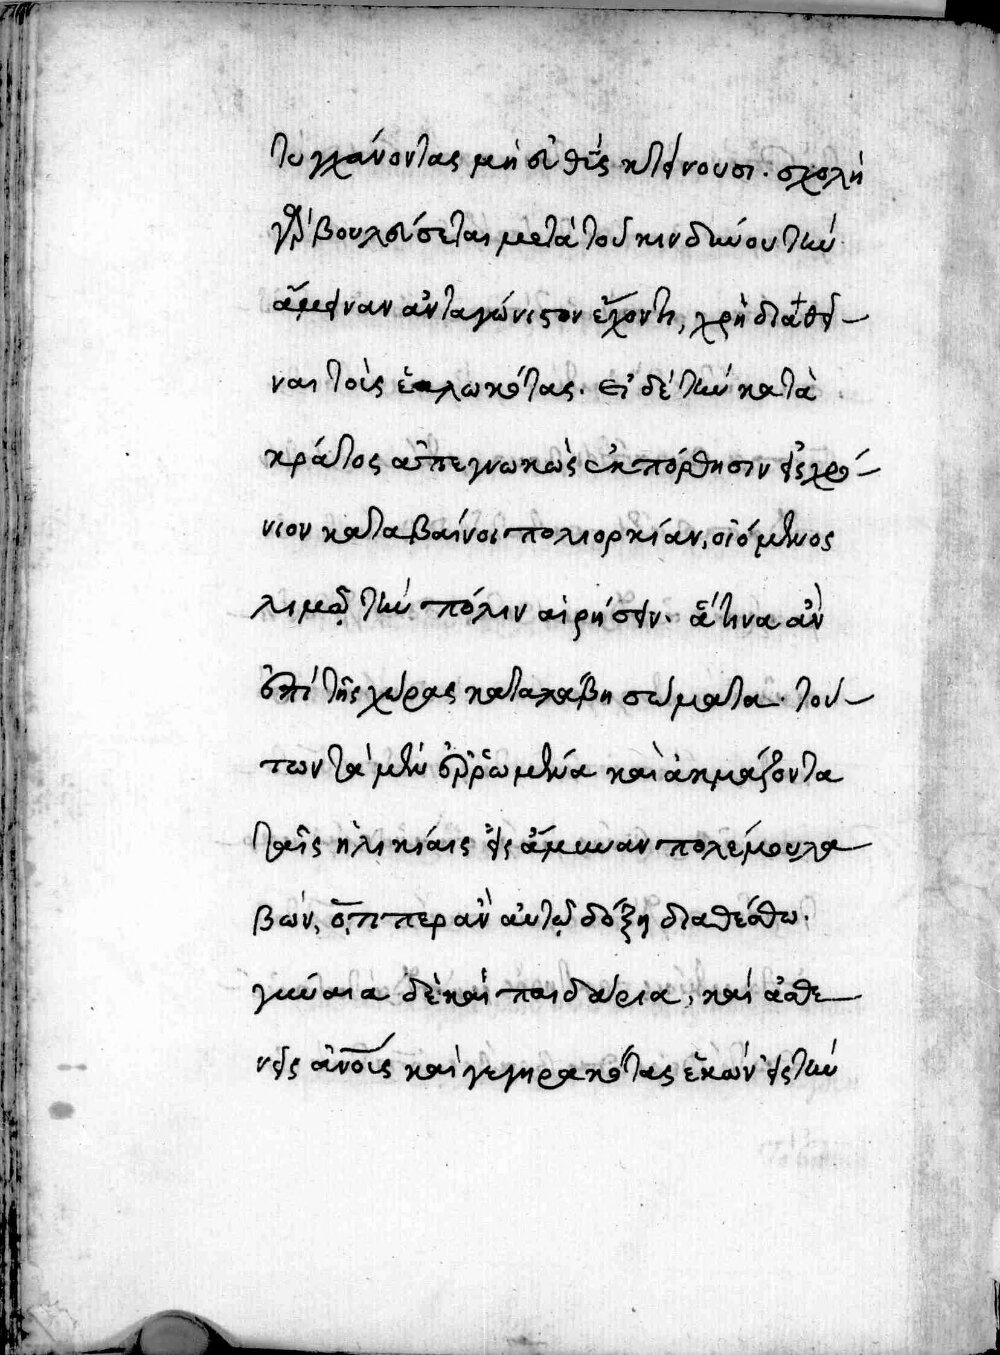 τυγχάνοντας μὴ εὐθὺς κτείνουσι. σχολῆ
γὰρ βουλεύσεται μετὰ τοῦ κινδύνου τὴν
ἄμειναν ἀνταγώνιστον ἔχοντι, χρὴ διαθεῖ
ναι τοὺς ἑαλωκότας. εἰ δὲ τὴν κατὰ
κράτος ἀπεγνωκὼς ἐκπόρθησιν εἰς χρό
νιον καταβαίνοι πολιορκίαν, οἰόμενος
λιμῷ τὴν πόλιν αἱρήσειν. ἅτινα ἂν
ἐπὶ τῆς χώρας καταλάβη σώματα. τού
των τὰ μὲν ἐρρωμένα καὶ ἀκμάζοντα
ταῖς ἡλικίαις εἰς ἄμυναν πολέμου λα
βών, ὅ,τιπερ ἂν αὐτῷ δόξη διαθέσθω.
γύναια δὲ καὶ παιδάρια, καὶ ἀσθε
νεῖς ἀνους καὶ γεγηρακότας ἑκὼν εἰς τὴν